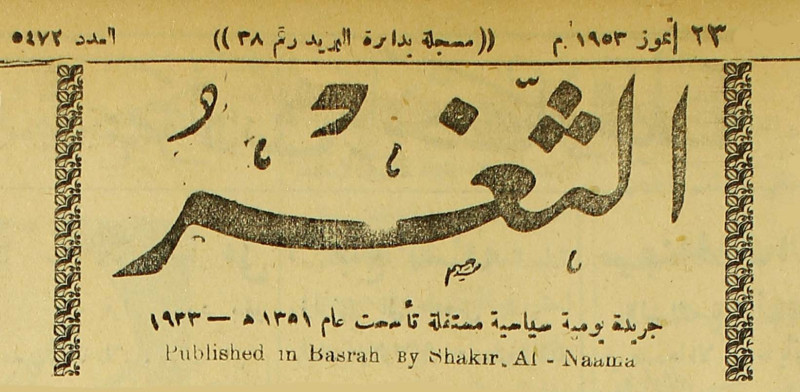 ٢٣ تموز ١٩٥٣ م ((مسجلة بدائرة البريد رقم ٣٨)) العدد ٥٤٧٢
الثَّغْرُ
جريدة يومية سياسية مستقلة تأسست عام ١٣٥١ هـ — ١٩٣٣
Published in Basrah By Shakir. Al - Naama